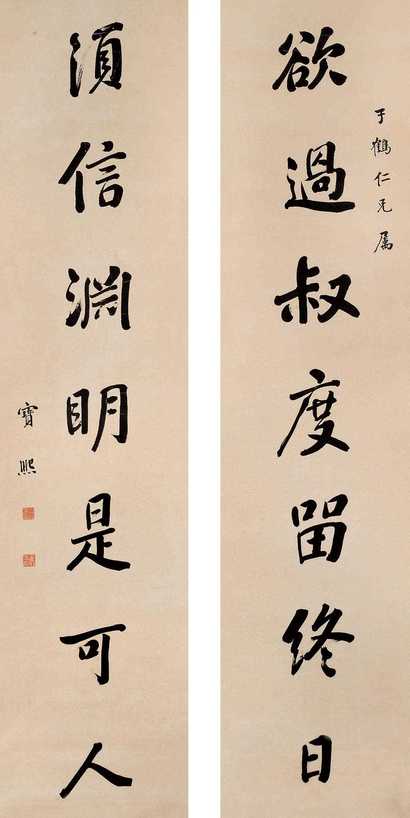 子鶴仁兄属
欲過叔度留終日
須信淵明是可人
寶熙